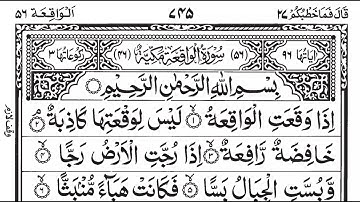 قَالَ فَمَا خَطْبُكُمْ ٢٧ ٧٤٥ اَلْوَاقِعَة ٥٦
اٰيَاتُهَا ٩٦ (٥٦) سُوْرَةُ الْوَاقِعَةِ مَكِّيَّةٌ (٤٦) رُكُوْعَاتُهَا ٣
بِسْمِ اللّٰهِ الرَّحْمٰنِ الرَّحِيْمِ
اِذَا وَقَعَتِ الْوَاقِعَةُ ۙ‏١ لَيْسَ لِوَقْعَتِهَا كَاذِبَةٌ ۘ‏٢
خَافِضَةٌ رَّافِعَةٌ ۙ‏٣ اِذَا رُجَّتِ الْاَرْضُ رَجًّا ۙ‏٤
وَّبُسَّتِ الْجِبَالُ بَسًّا ۙ‏٥ فَكَانَتْ هَبَآءً مُّنْۢبَثًّا ۙ‏٦